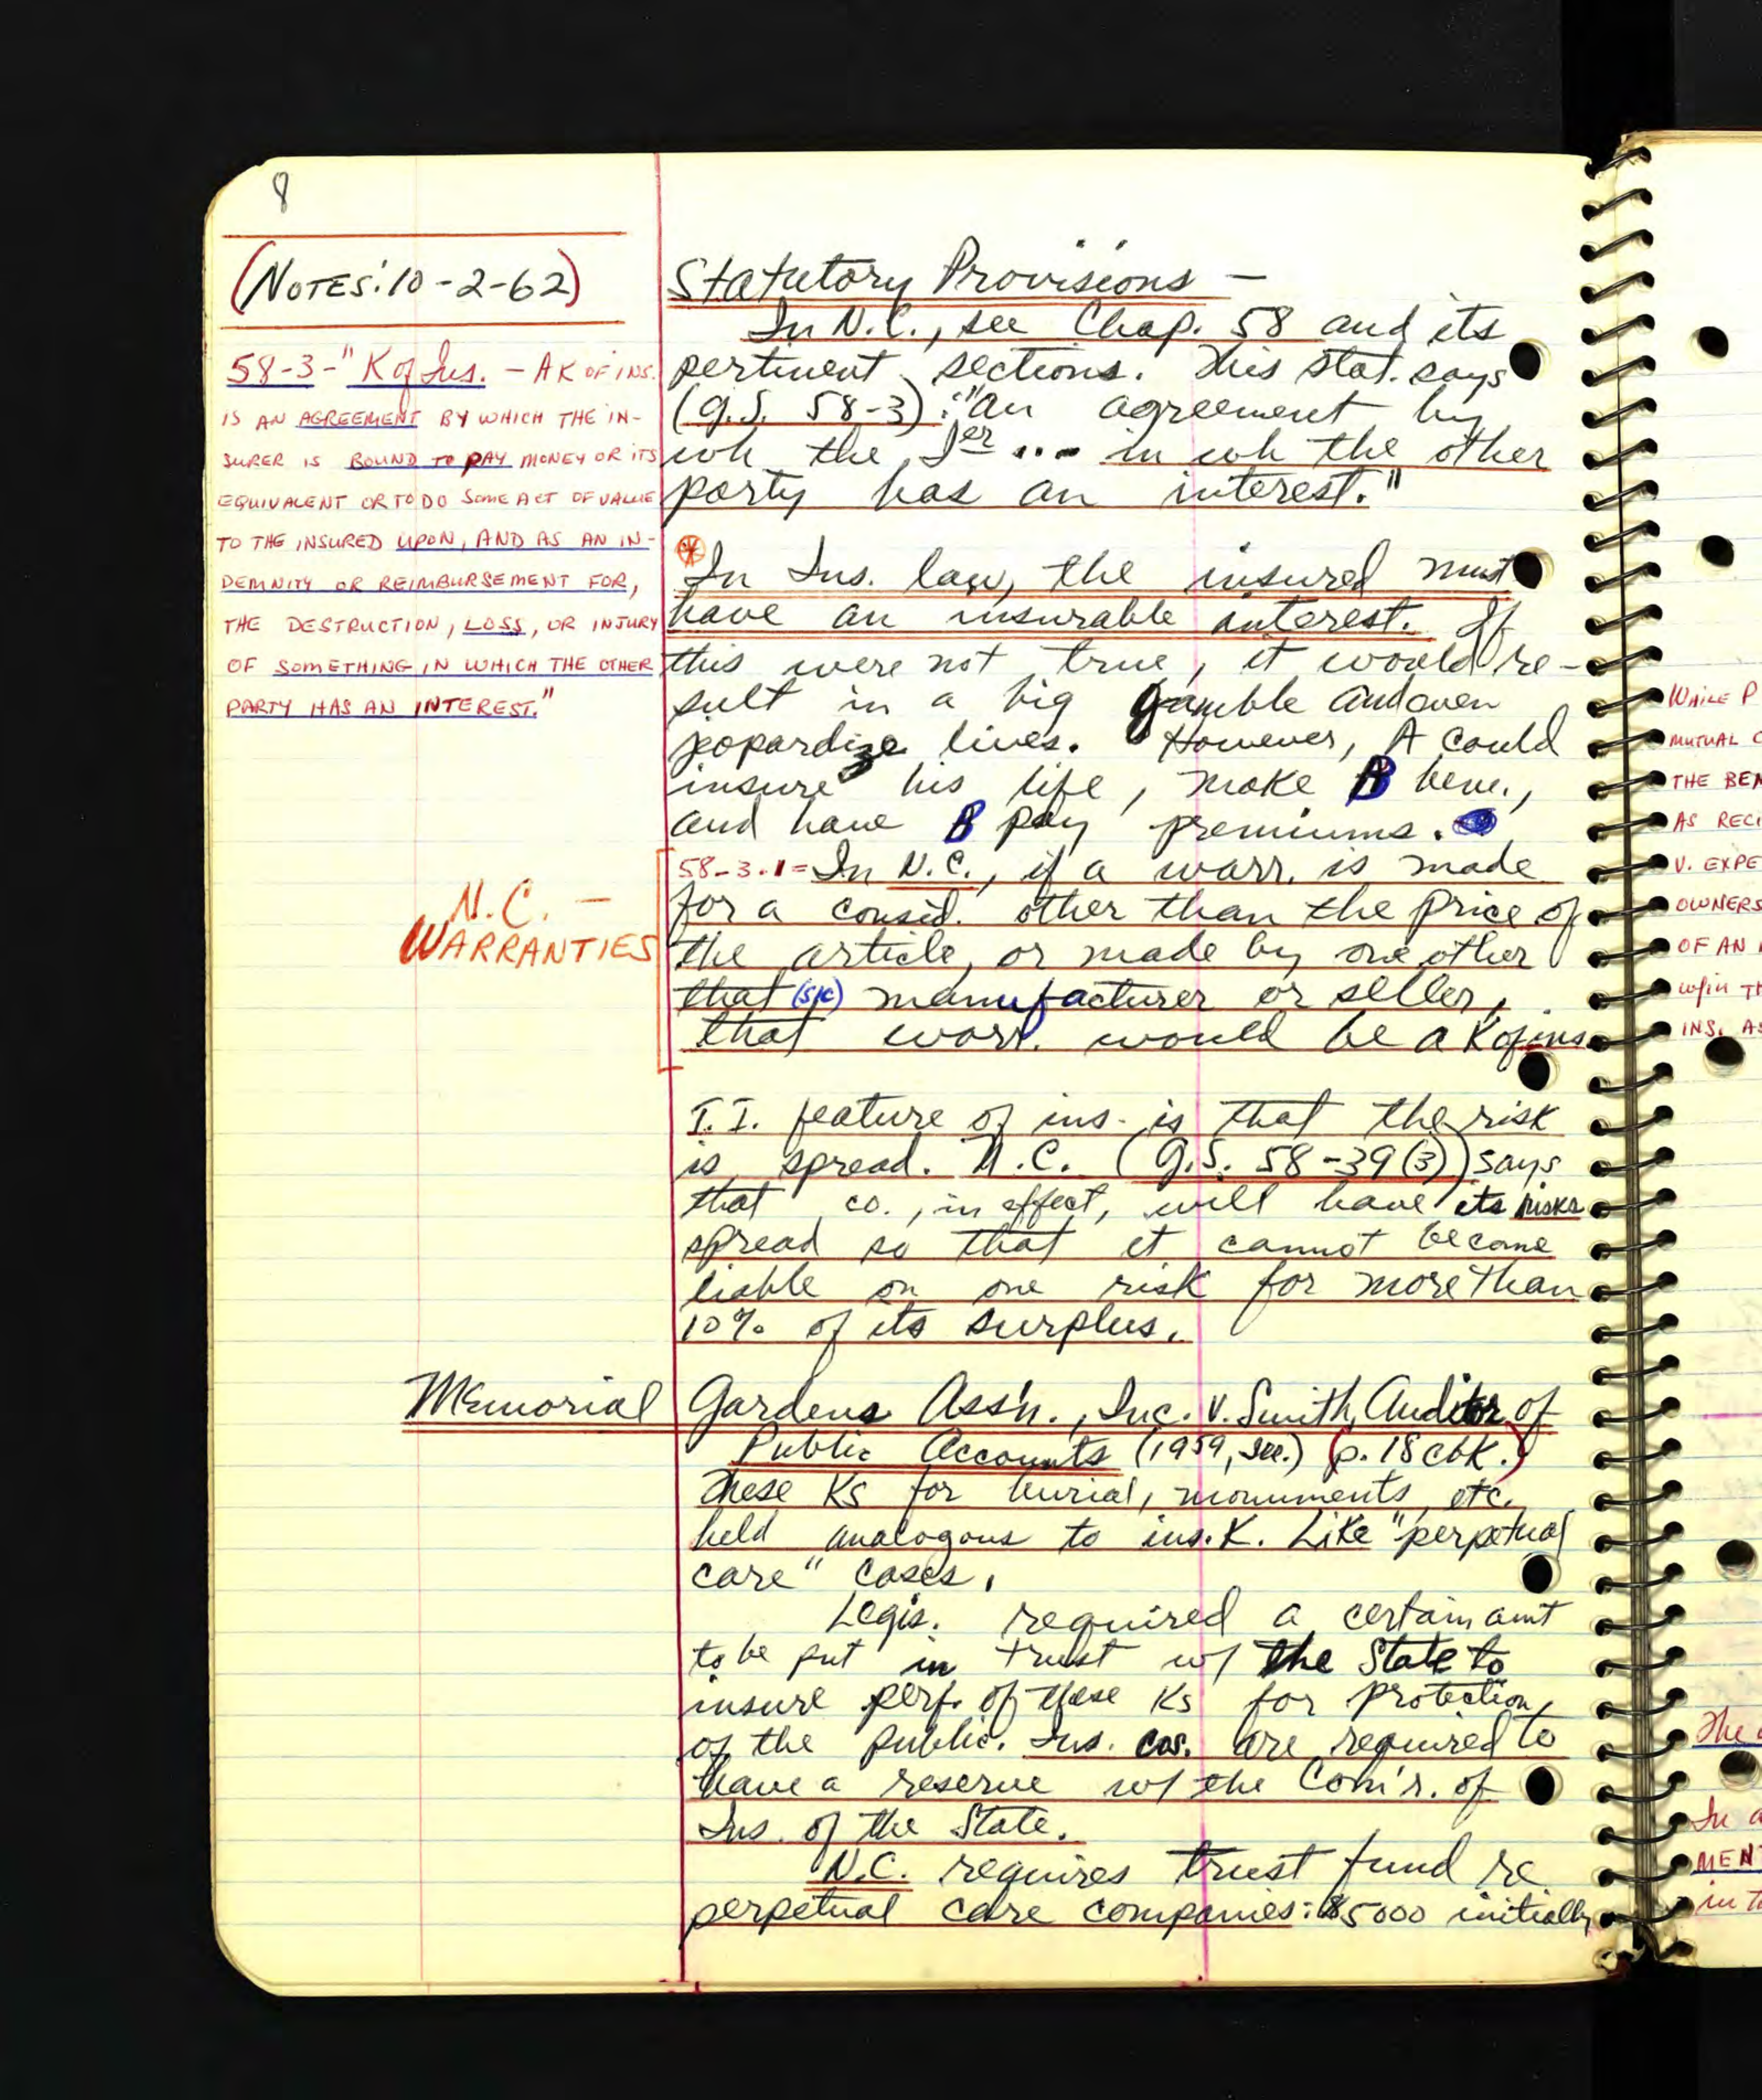 8
(NOTES: 10-2-62)
58-3-"K of Ins. - A K OF INS.
IS AN AGREEMENT BY WHICH THE IN-
SURER IS BOUND TO PAY MONEY OR ITS
EQUIVALENT OR TO DO SOME ACT OF VALUE
TO THE INSURED UPON, AND AS AN IN-
DEMNITY OR REIMBURSEMENT FOR,
THE DESTRUCTION, LOSS, OR INJURY
OF SOMETHING IN WHICH THE OTHER
PARTY HAS AN INTEREST."
N.C. -
WARRANTIES
Statutory Provisions -
In N.C., see Chap. 58 and its
pertinent sections. This stat. says
(G.S. 58-3): "an agreement by
wh the Ier ... in wh the other
party has an interest."
* In Ins. law, the insured must
have an insurable interest. If
this were not true, it would re-
sult in a big gamble and even
jeopardize lives. However, A could
insure his life, make B bene.,
and have B pay premiums.
58-3.1 = In N.C., if a warr. is made
for a consid. other than the price of
the article, or made by one other
that (sic) manufacturer or seller,
that warr. would be a K of ins.
I.I. feature of ins. is that the risk
is spread. N.C. (G.S. 58-39(3)) says
that co., in effect, will have its risks
spread so that it cannot become
liable on one risk for more than
10% of its surplus.
Memorial Gardens Ass'n., Inc. v. Smith, Auditor of
Public Accounts (1959, Ill.) (p. 18 cbk.)
These Ks for burial, monuments, etc.
held analogous to ins. K. Like "perpetual
care" cases.
Legis. required a certain amt
to be put in trust w/ the State to
insure perf. of these Ks for protection
of the public. Ins. cos. are required to
have a reserve w/ the Com'r. of
Ins. of the State.
N.C. requires trust fund re
perpetual care companies: $5000 initially
WHILE P
MUTUAL C
THE BEN
AS RECI
V. EXPE
OWNERS
OF AN
w/in TH
INS. AS
The
In a
MENT
in t